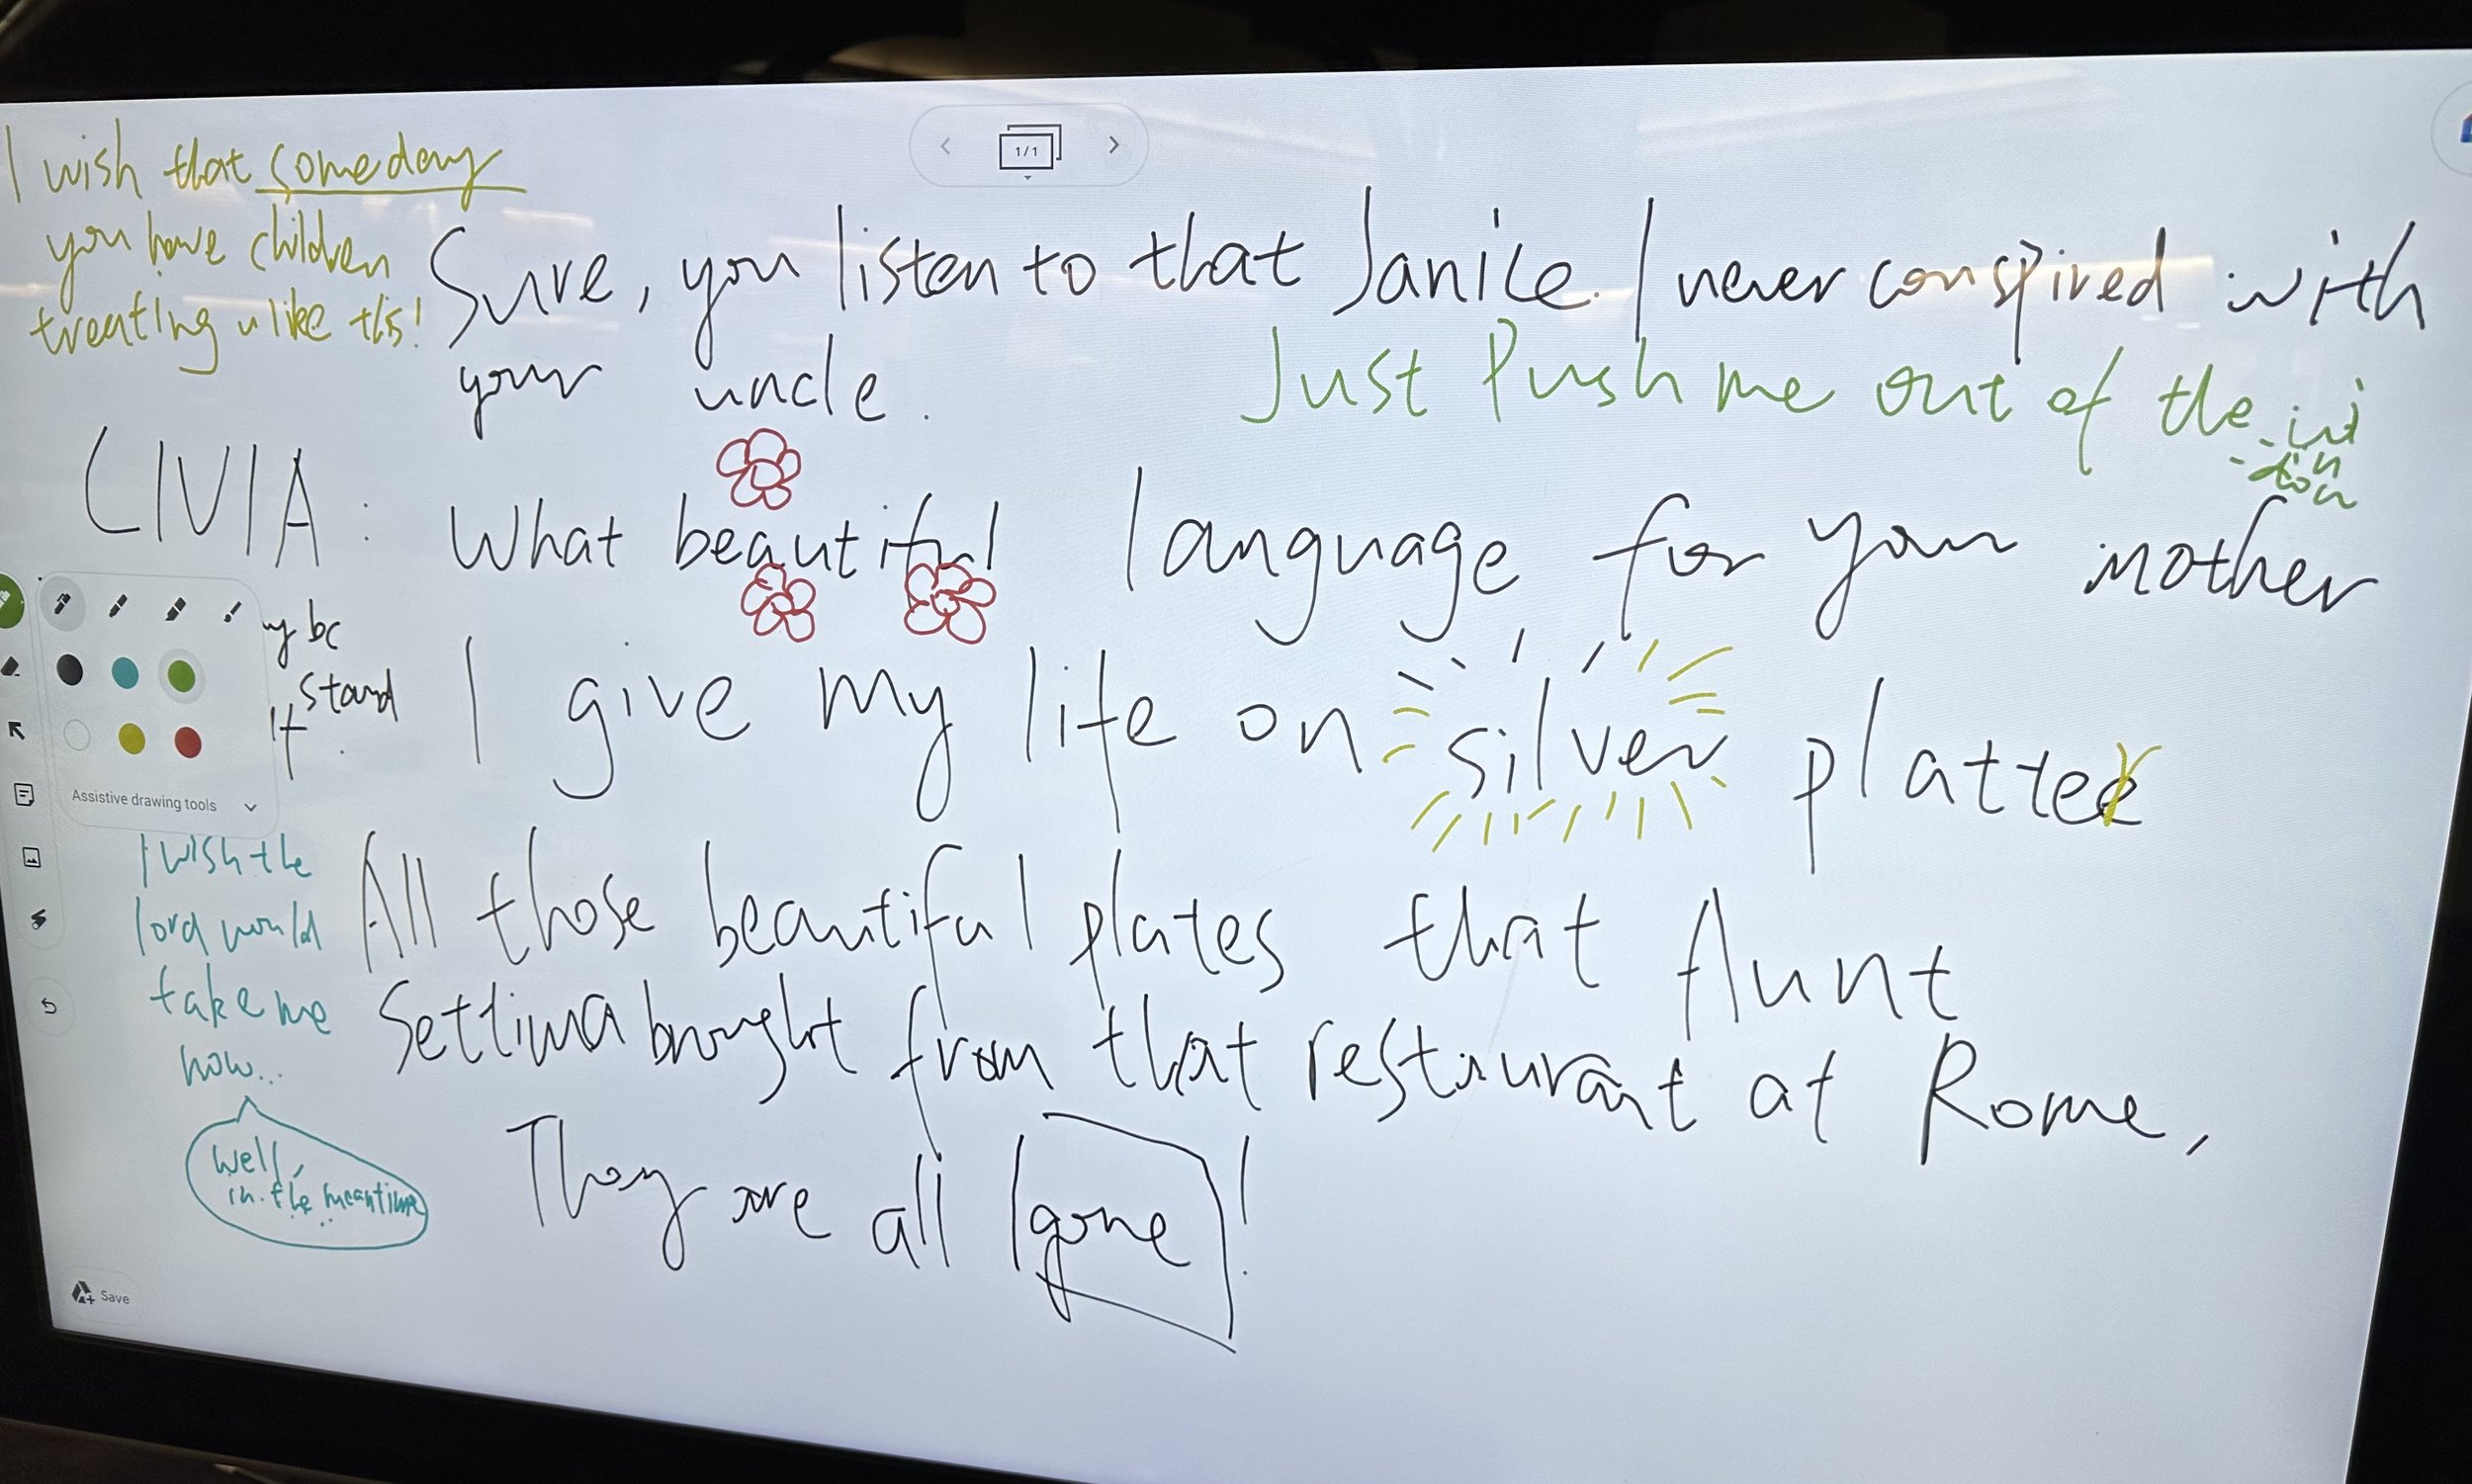 I wish that someday
you have children
treating u like this!
1/1
Sure, you listen to that Janice. I never conspired with
your uncle.
Just push me out of the win
-dow
LIVIA: What beautiful language for your mother
I give my life on silver platter
stand
it.
All those beautiful plates that Aunt
Settima brought from that restaurant at Rome,
They are all gone!
Assistive drawing tools
I wish the
lord would
take me
now...
Well,
in the meantime
Save